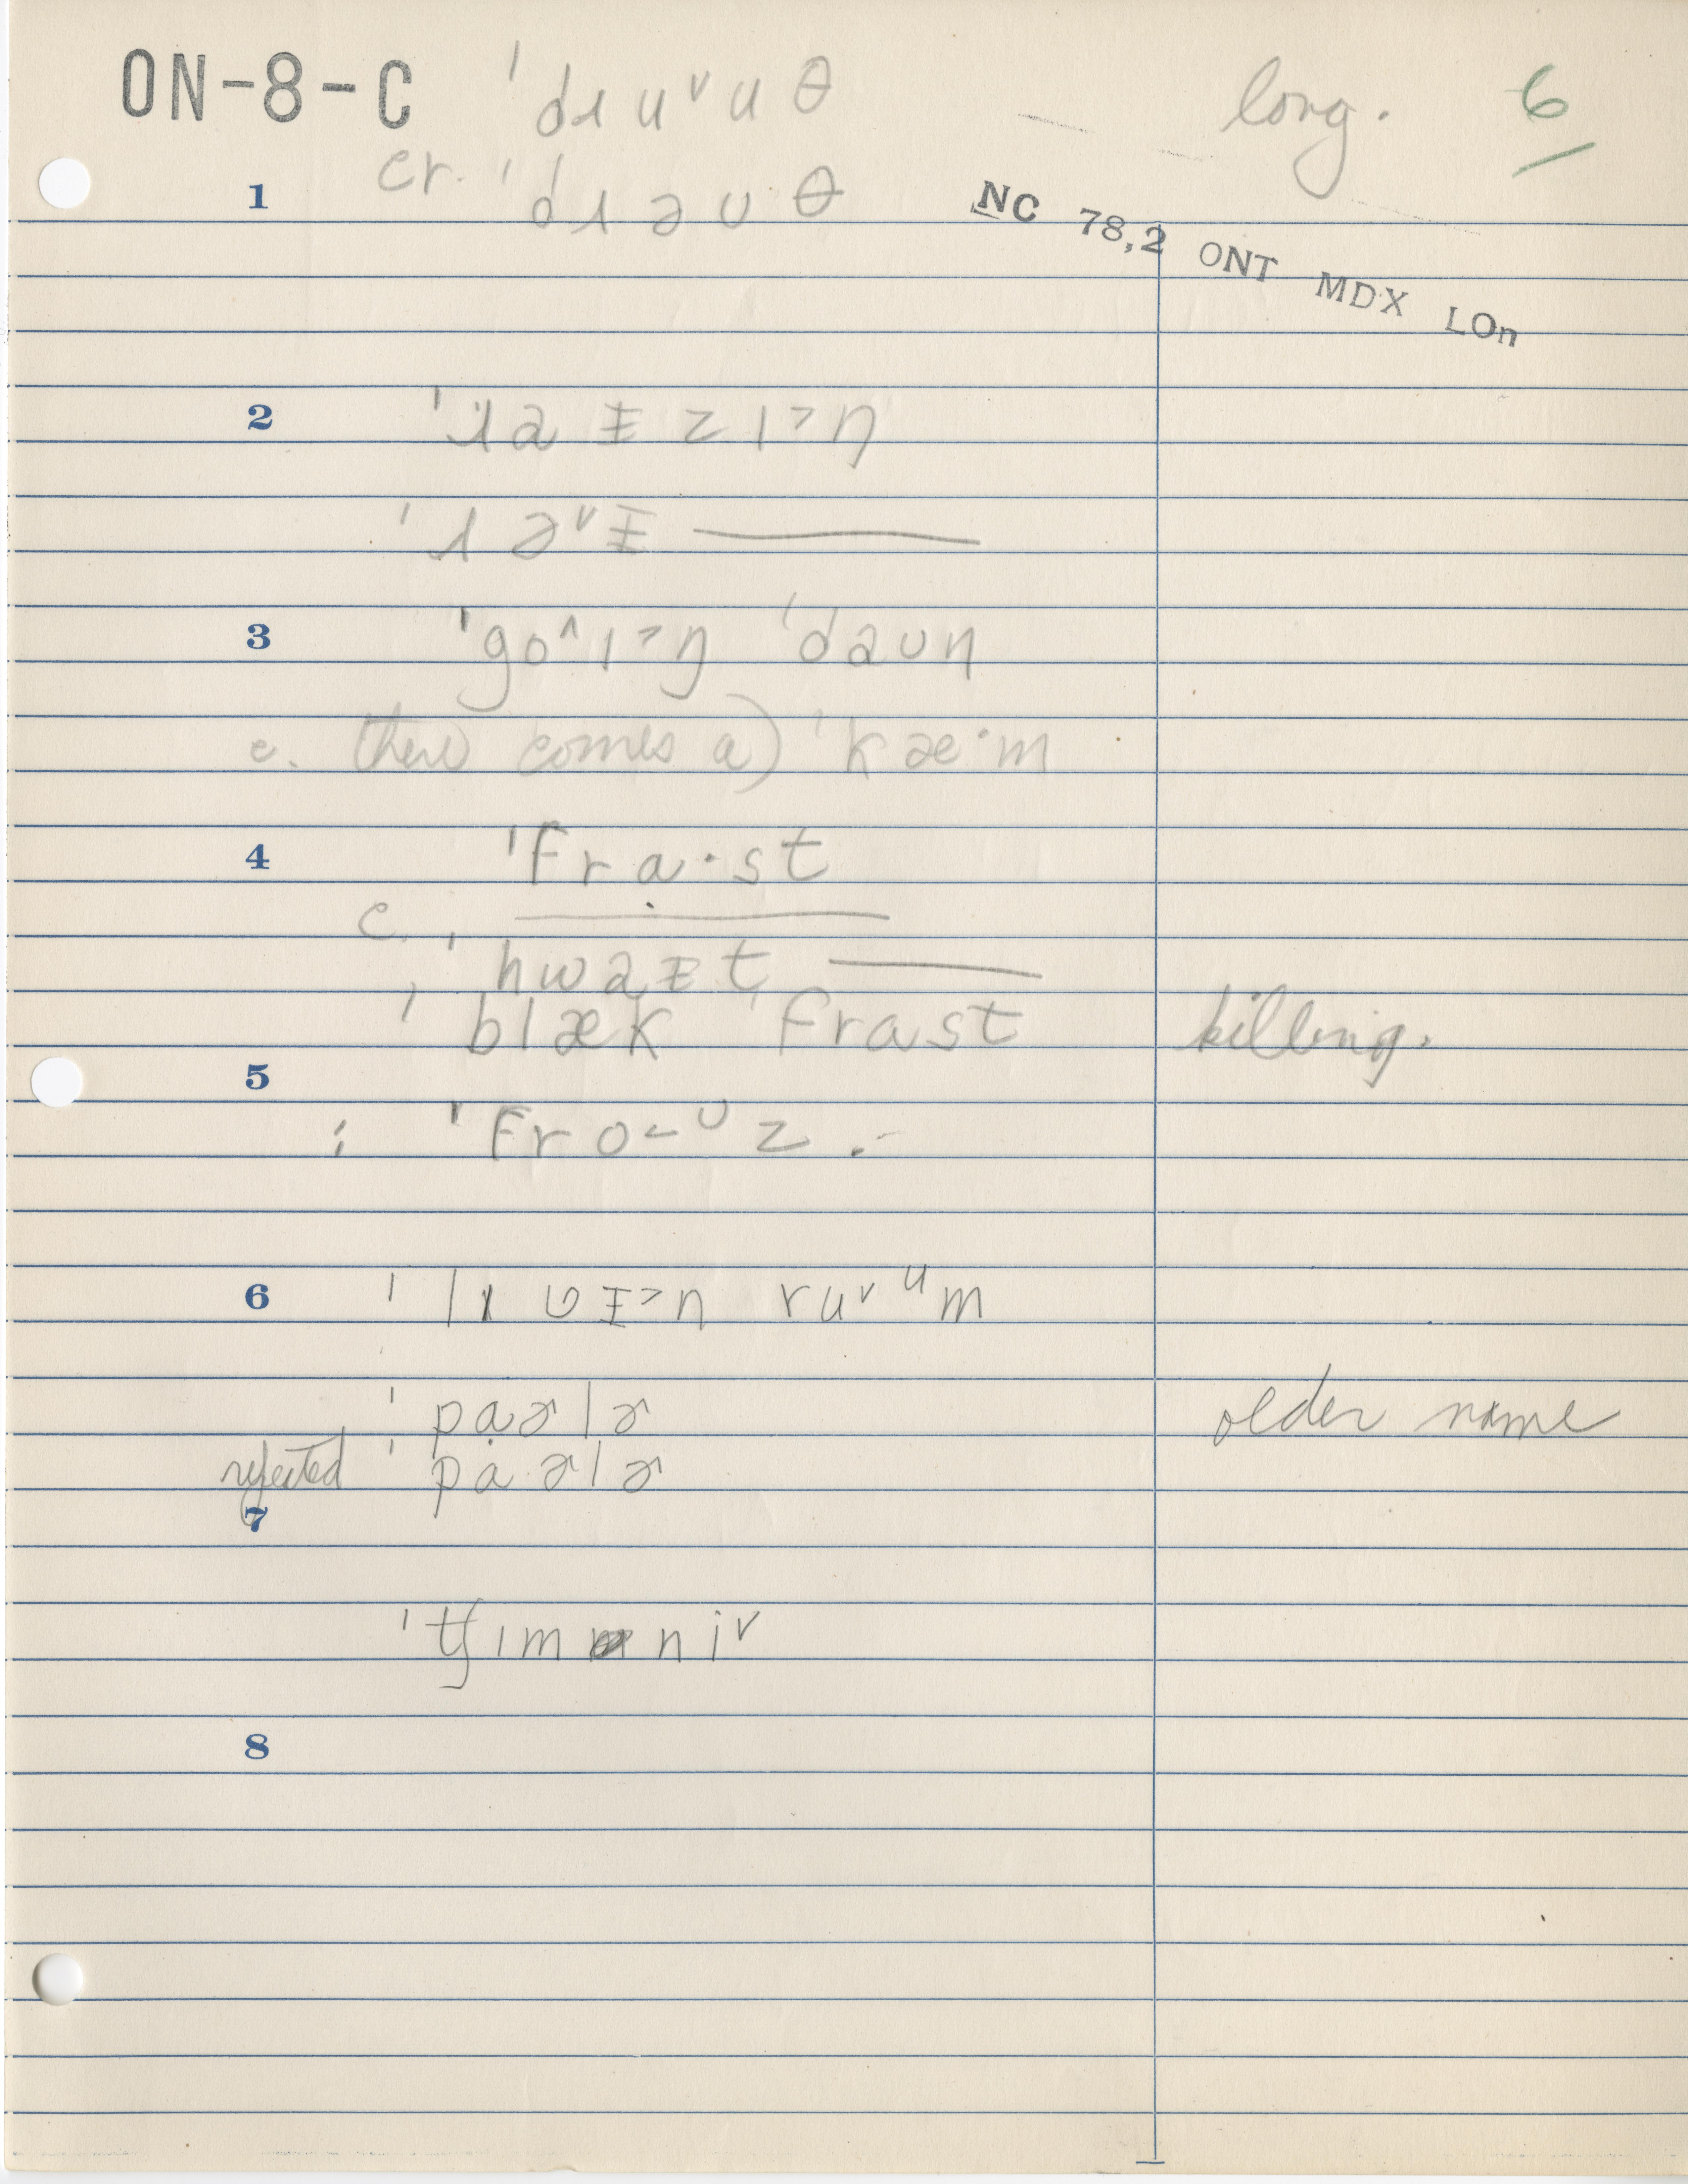 ON-8-C ˈdɹu˅uθ long. 6
1 cr. ˈdɹaʊθ
NC 78,2 ONT MDX LOn
2 ˈɹaɪzɪ˃ŋ
ˈɹə˅ɪ ———
3 ˈgo^ɪ˃ŋ ˈdaun
c. there comes a) ˈkæ·m
4 ˈfra·st
c. ———
ˈhwaɪt ———
ˈblæk ˈfrast killing.
5
; ˈfro˂ᶷz.
6 ˈlɪvɪ˃ŋ ru˅ᵘm
ˈpaɚlɚ older name
rejected ˈpaɚlɚ
7
ˈtʃɪmni˅
8